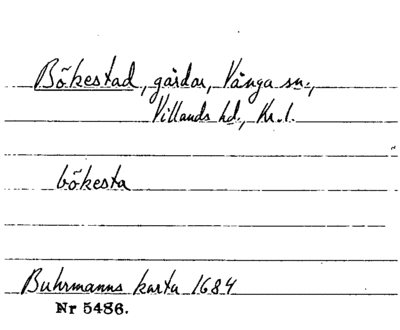 Bökestad, gårdar, Vånga sn.,
Villands hd., Kr.l.
bökesta
Buhrmanns karta 1684
Nr 5486.